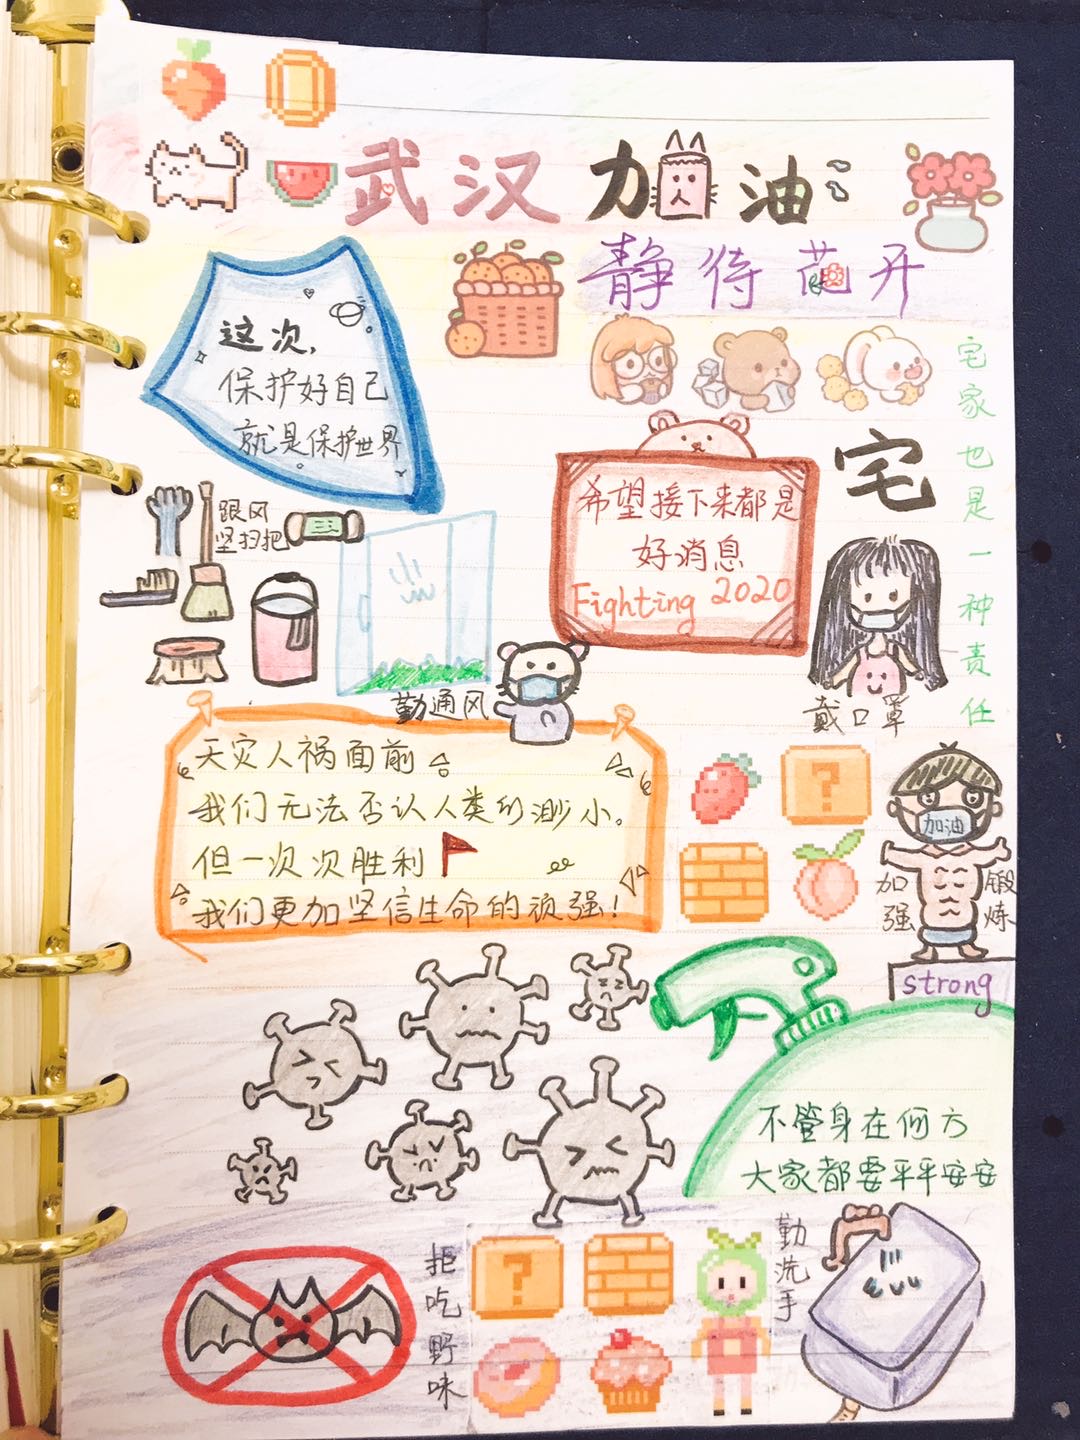 武汉加油
静待花开
这次,
保护好自己
就是保护世界
宅家也是一种责任
宅
希望接下来都是
好消息
Fighting 2020
跟风
坚扫把
勤通风
戴口罩
天灾人祸面前
我们无法否认人类的渺小。
但一次次胜利
我们更加坚信生命的顽强!
加油
加强
锻炼
strong
不管身在何方
大家都要平平安安
拒吃野味
勤洗手